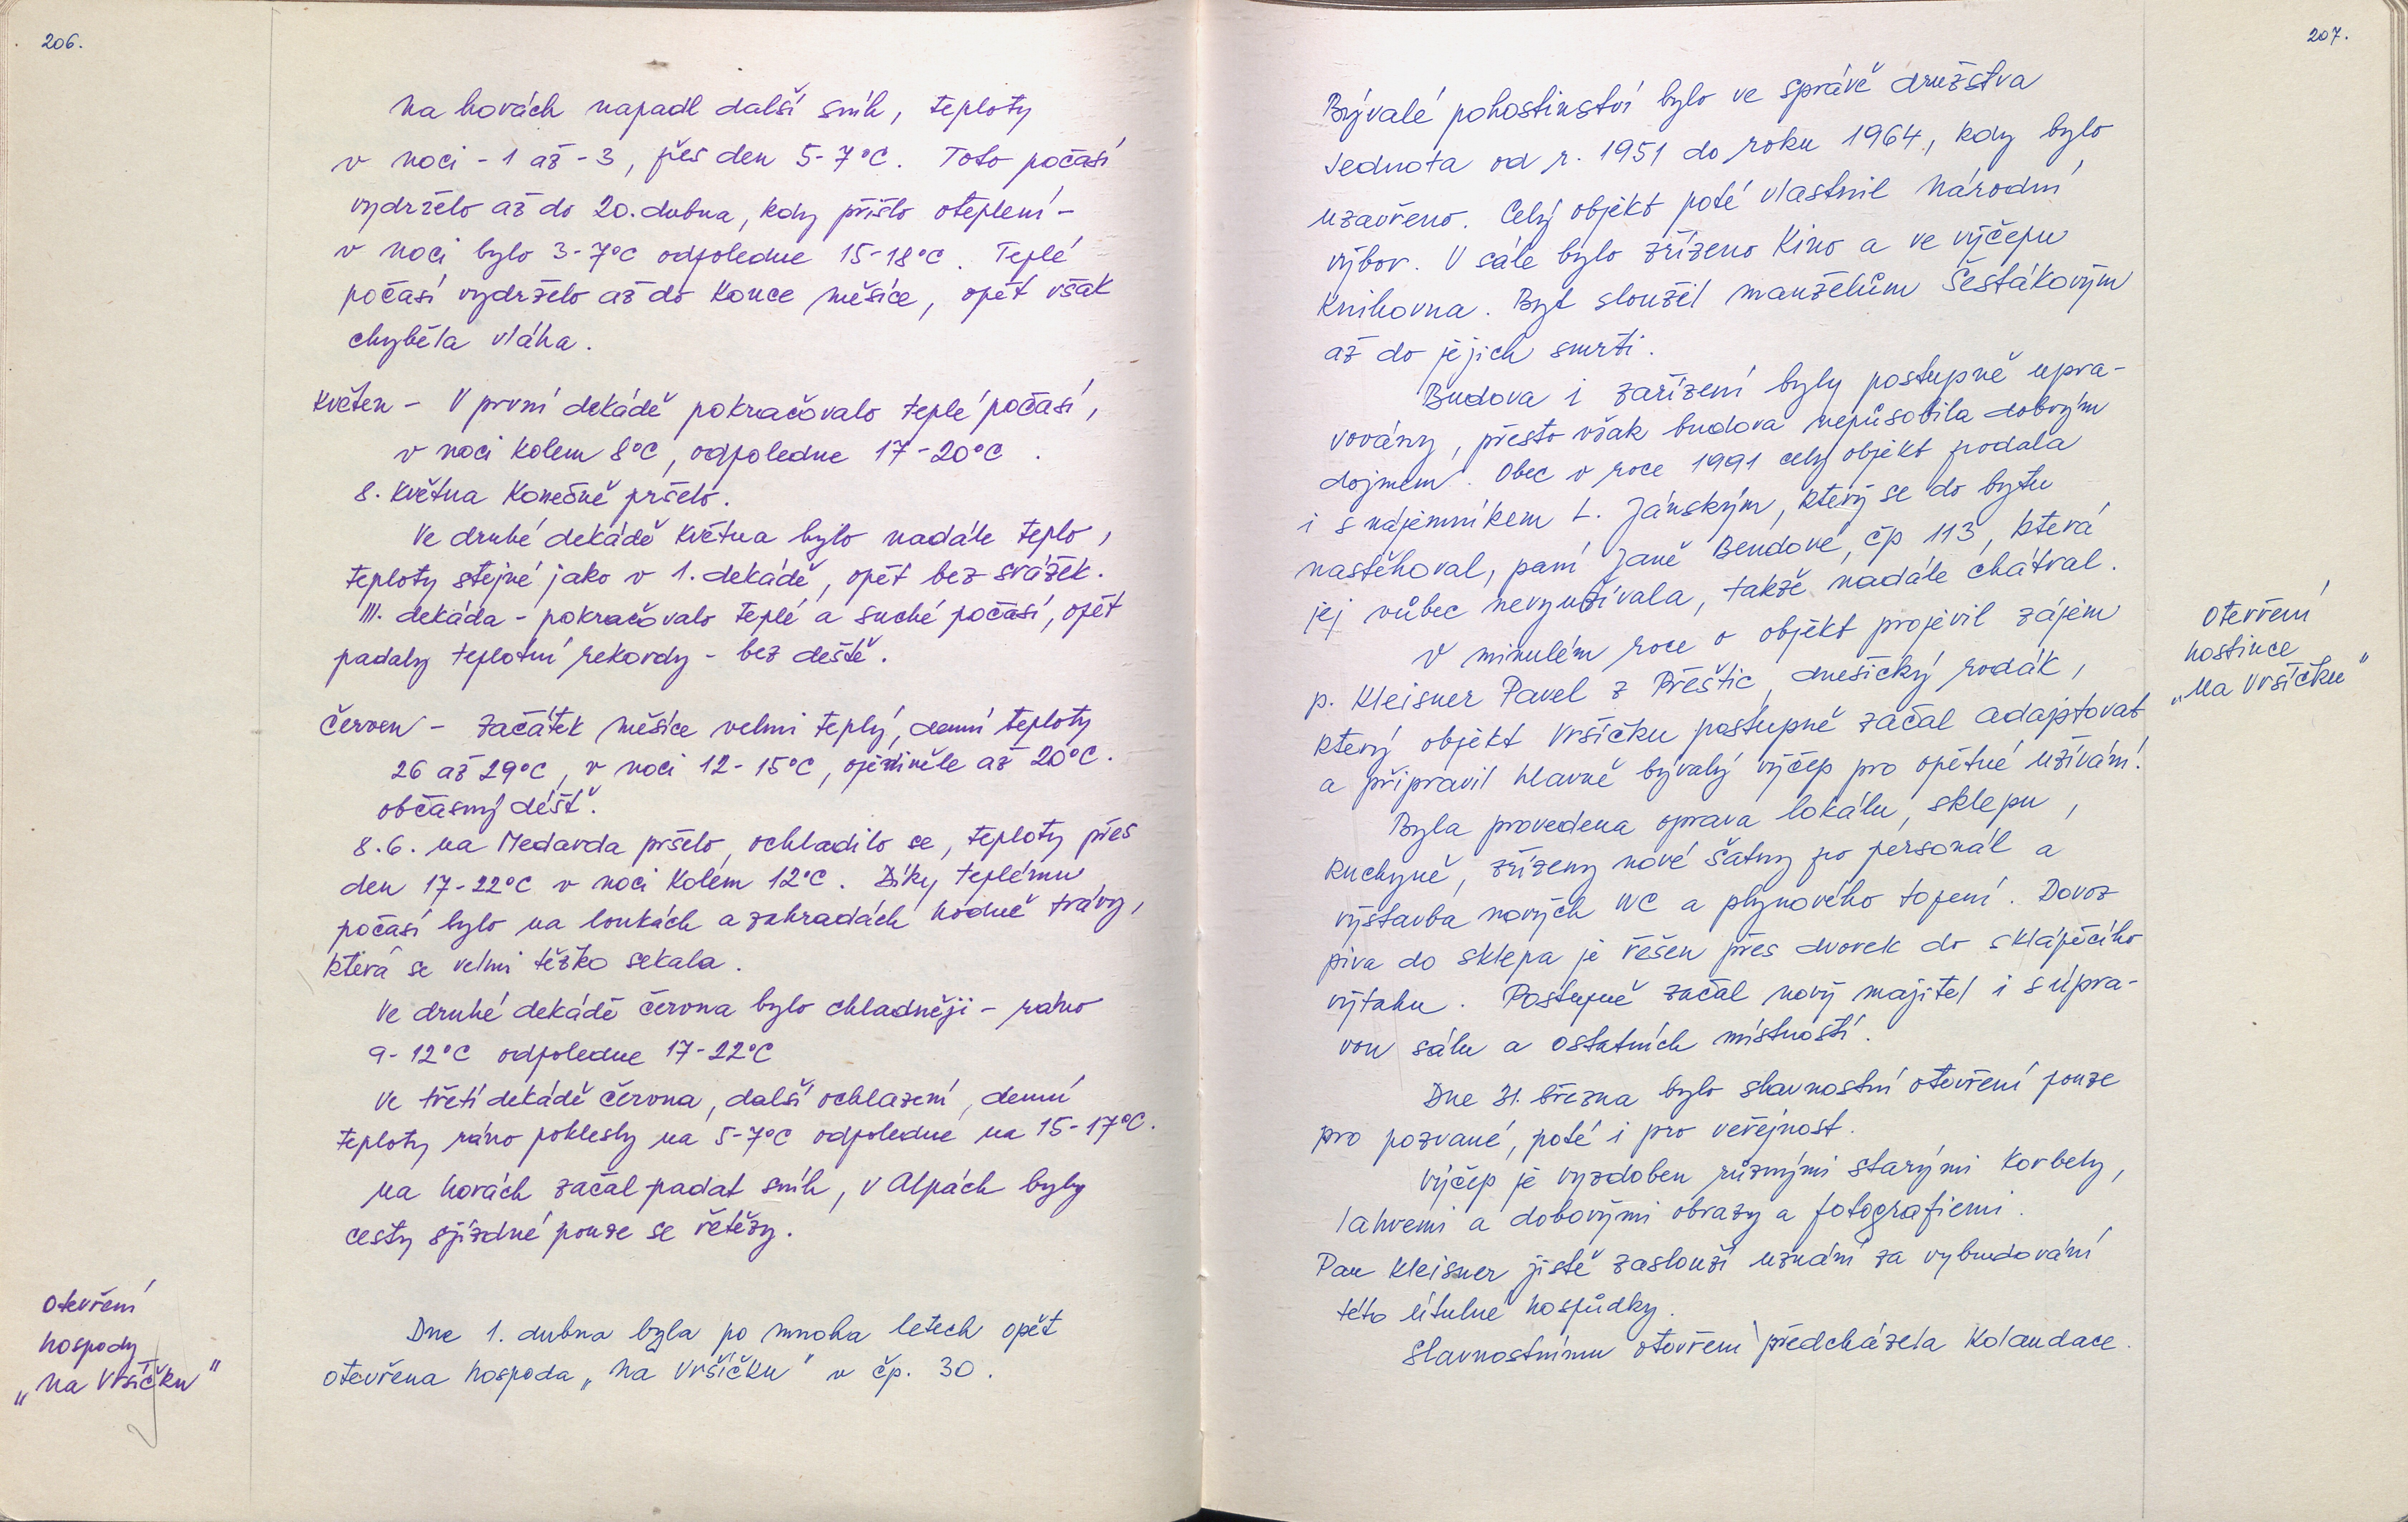 206.
Na horách napadl další sníh, teploty
v noci -1 až -3, přes den 5-7°C. Toto počasí
vydrželo až do 20. dubna, kdy přišlo oteplení -
v noci bylo 3-7°C odpoledne 15-18°C. Teplé
počasí vydrželo až do konce měsíce, opět však
chyběla vláha.
Květen - V první dekádě pokračovalo teplé počasí,
v noci kolem 8°C, odpoledne 17-20°C.
8. května konečně pršelo.
Ve druhé dekádě května bylo nadále teplo,
teploty stejné jako v 1. dekádě, opět bez srážek.
III. dekáda - pokračovalo teplé a suché počasí, opět
padaly teplotní rekordy - bez deště.
Červen - Začátek měsíce velmi teplý, denní teploty
26 až 29°C, v noci 12-15°C, ojediněle až 20°C.
občasný déšť.
8.6. na Medarda pršelo, ochladilo se, teploty přes
den 17-22°C v noci kolem 12°C. Díky teplému
počasí bylo na loukách a zahradách hodně trávy,
která se velmi těžko sekala.
Ve druhé dekádě června bylo chladněji - ráno
9-12°C odpoledne 17-22°C
Ve třetí dekádě června, další ochlazení, denní
teploty ráno poklesly na 5-7°C odpoledne na 15-17°C.
Na horách začal padat sníh, v Alpách byly
cesty sjízdné pouze se řetězy.
Otevření
hospody
„Na Vršíčku"
Dne 1. dubna byla po mnoha letech opět
otevřena hospoda „Na Vršíčku" v čp. 30.
207.
Bývalé pohostinství bylo ve správě družstva
Jednota od r. 1951 do roku 1964, kdy bylo
uzavřeno. Celý objekt poté vlastnil Národní
výbor. V sále bylo zřízeno kino a ve výčepu
knihovna. Byt sloužil manželům Šestákovým
až do jejich smrti.
Budova i zařízení byly postupně upra-
vovány, přesto však budova nepůsobila dobrým
dojmem. Obec v roce 1991 celý objekt prodala
i s nájemníkem L. Jánským, který se do bytu
nastěhoval, paní Janě Bendové, čp 113, která
jej vůbec nevyužívala, takže nadále chátral.
V minulém roce o objekt projevil zájem
p. Kleisner Pavel z Přeštic, dnešický rodák,
který objekt Vršíčku postupně začal adaptovat
a připravil hlavně bývalý výčep pro opětné užívání.
Byla provedena oprava lokálu, sklepu,
kuchyně, zřízeny nové šatny po personál a
výstavba nových WC a plynového topení. Dovoz
piva do sklepa je řešen přes dvorek do sklápěcího
výtahu. Postupně začal nový majitel i s úpra-
vou sálu a ostatních místností.
Dne 31. března bylo slavnostní otevření pouze
pro pozvané, poté i pro veřejnost.
Výčep je vyzdoben různými starými korbely,
lahvemi a dobovými obrazy a fotografiemi.
Pan Kleisner jistě zaslouží uznání za vybudování
této útulné hospůdky.
Slavnostnímu otevření předcházela kolaudace.
Otevření
hostince
„Na Vršíčku"